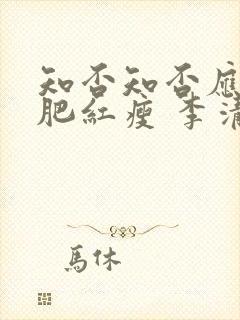 知否知否應
肥紅瘦 李清
馬休